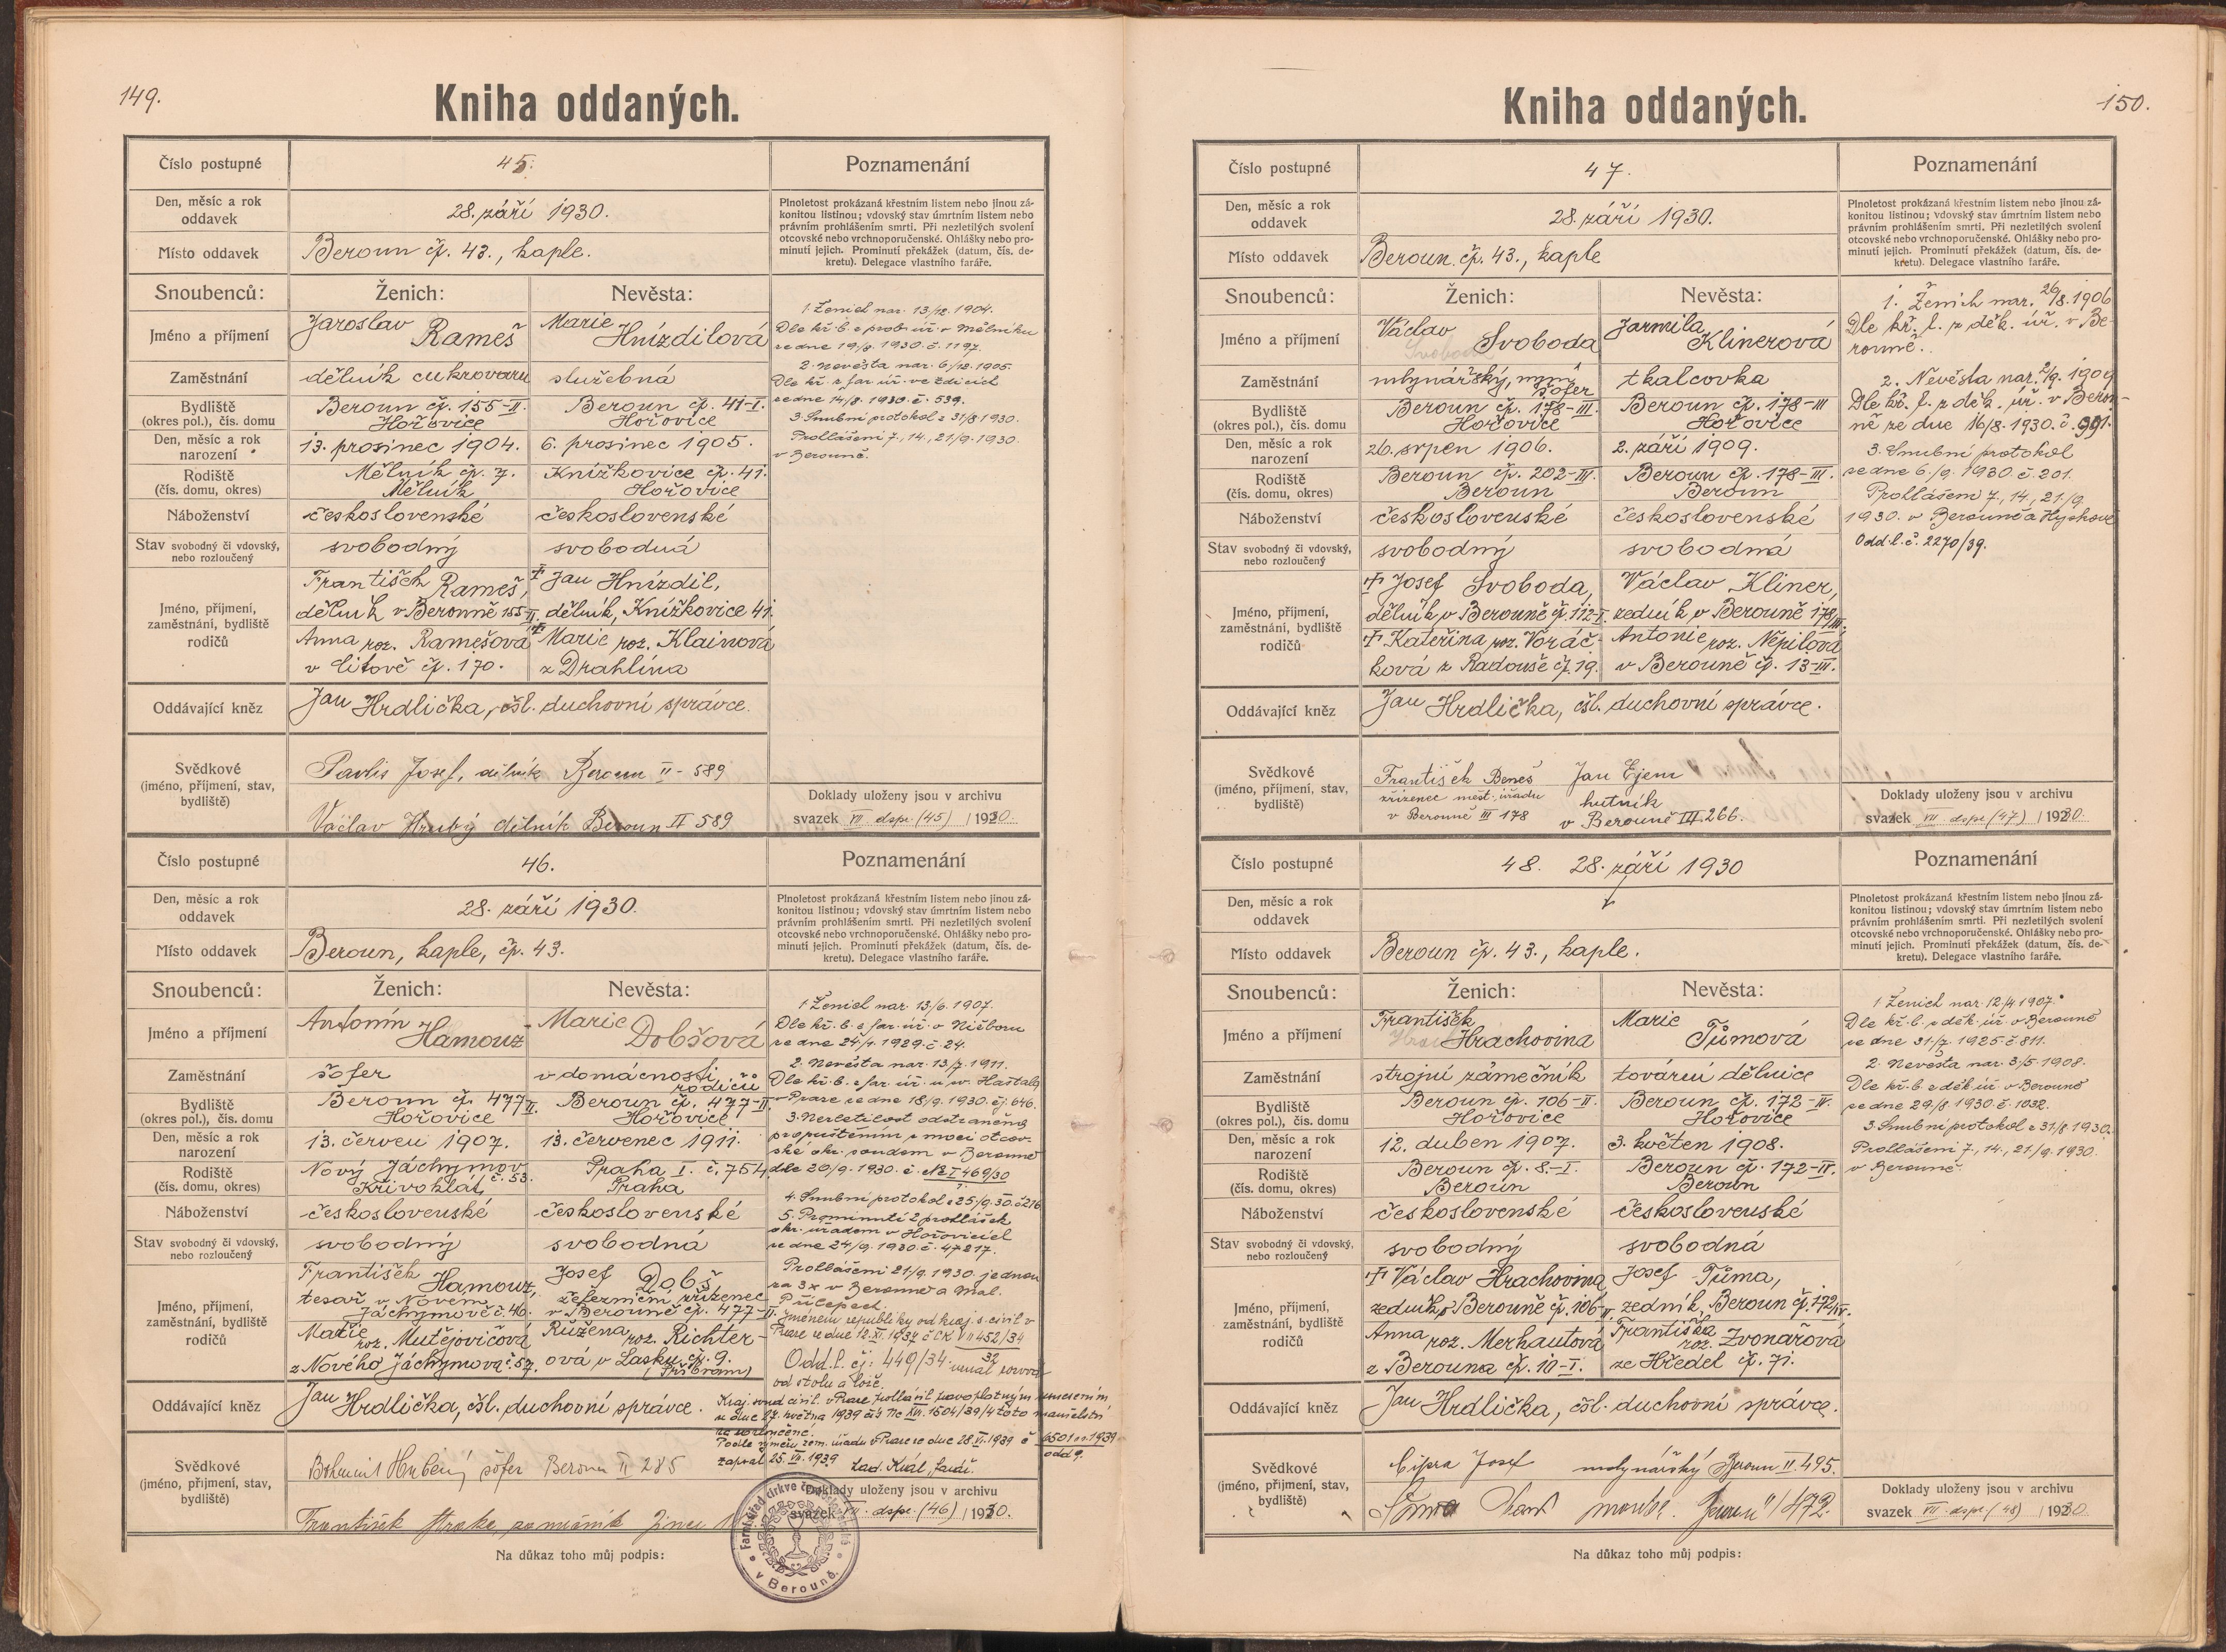 149.
Kniha oddaných.
Číslo postupné
45.
Poznamenání
Den, měsíc a rok
oddavek
28. září 1930.
Plnoletost prokázaná křestním listem nebo jinou zá-
konitou listinou; vdovský stav úmrtním listem nebo
právním prohlášením smrti. Při nezletilých svolení
otcovské nebo vrchnoporučenské. Ohlášky nebo pro-
minutí jejich. Prominutí překážek (datum, čís. de-
kretu). Delegace vlastního faráře.
Místo oddavek
Beroun čp. 43., kaple.
Snoubenců:
Ženich:
Nevěsta:
Jméno a příjmení
Jaroslav Rameš
Marie Hnízdilová
Zaměstnání
dělník cukrovaru
služebná
Bydliště
(okres pol.), čís. domu
Beroun čp. 155-II.
Hořovice
Beroun čp. 41-I.
Hořovice
Den, měsíc a rok
narození
13. prosinec 1904.
6. prosinec 1905.
Rodiště
(čís. domu, okres)
Mělník čp. 7.
Mělník
Knížkovice čp. 41.
Hořovice
Náboženství
československé
československé
Stav svobodný či vdovský,
nebo rozloučený
svobodný
svobodná
Jméno, příjmení,
zaměstnání, bydliště
rodičů
František Rameš,
dělník v Berouně 155-II.
Anna roz. Ramešová
v Litově čp. 170.
† Jan Hnízdil,
dělník, Knížkovice 41.
† Marie roz. Klainová
z Drahlína
1. Ženich nar. 13/12. 1904.
Dle kř. l. z prob. úř. v Mělníku
ze dne 19/8. 1930. č. 1197.
2. Nevěsta nar. 6/12. 1905.
Dle kř. l. z far. úř. ve Zdicích
ze dne 14/8. 1930. č. 539.
3. Snubní protokol z 31/8 1930.
Prohlášení 7., 14., 21./9. 1930.
v Berouně.
Oddávající kněz
Jan Hrdlička, čsl. duchovní správce.
Svědkové
(jméno, příjmení, stav,
bydliště)
Pavlis Josef, dělník Beroun II - 589
Václav Hrubý dělník Beroun II 589
Doklady uloženy jsou v archivu
svazek VII dspr. (45) 1930.
Číslo postupné
46.
Poznamenání
Den, měsíc a rok
oddavek
28. září 1930.
Plnoletost prokázaná křestním listem nebo jinou zá-
konitou listinou; vdovský stav úmrtním listem nebo
právním prohlášením smrti. Při nezletilých svolení
otcovské nebo vrchnoporučenské. Ohlášky nebo pro-
minutí jejich. Prominutí překážek (datum, čís. de-
kretu). Delegace vlastního faráře.
Místo oddavek
Beroun, kaple, čp. 43.
Snoubenců:
Ženich:
Nevěsta:
Jméno a příjmení
Antonín Hamouz
Marie Dobšová
Zaměstnání
šofer
v domácnosti rodičů
Bydliště
(okres pol.), čís. domu
Beroun čp. 477 II.
Hořovice
Beroun čp. 477-II.
Hořovice
Den, měsíc a rok
narození
13. červen 1907.
13. červenec 1911.
Rodiště
(čís. domu, okres)
Nový Jáchymov č. 53.
Křivoklát
Praha I. č. 754,
Praha
Náboženství
československé
československé
Stav svobodný či vdovský,
nebo rozloučený
svobodný
svobodná
Jméno, příjmení,
zaměstnání, bydliště
rodičů
František Hamouz,
tesař v Novém
Jáchymově č. 46.
Marie roz. Mutějovičová
z Nového Jáchymova č. 57.
Josef Dobš,
železniční zřízenec
v Berouně čp. 477-II.
Růžena roz. Richter-
ová v Lasku čp. 9.
(Příbram)
1. Ženich nar. 13/6. 1907.
Dle kř. l. z far. úř. v Nižboru
ze dne 24/1. 1929. č. 24.
2. Nevěsta nar. 13/7. 1911.
Dle kř. l. z far. úř. u sv. Haštala
v Praze ze dne 18/9. 1930. čj. 646.
3. Nezletilost odstraněna
propuštěním z moci otcov-
ské okr. soudem v Berouně
dle 20/9. 1930. č. I 469/30
4. Snubní protokol z 25./9. 30. č. 216
5. Prominutí 2 prohlášek
okr. úřadem v Hořovicích
ze dne 24/9. 1930. č. 47217.
Prohlášení 21/9. 1930. jednou
za 3x v Berouně a Mal.
Přílepech.
Jménem republiky od kraj. s. civil v
Praze ze dne 12. XI. 1934 č. Ck VII 452/34
Odd. l. čj: 449/34. uznal rozvod
od stolu a lože.
Kraj. soud civil. v Praze prohlásil pravoplatným usnesením
ze dne 27. května 1939 čj Nc XVI. 1504/39/4 toto manželství
za rozloučené.
Podle výměru zem. úřadu v Praze ze dne 28. VI. 1939 č
zapsal 25. VII. 1939 Lad. Král, farář.
Oddávající kněz
Jan Hrdlička, čsl. duchovní správce.
Svědkové
(jméno, příjmení, stav,
bydliště)
Bohumil Hubený šofer Beroun II 285
František Straka
Doklady uloženy jsou v archivu
svazek VII. dspr. (46) 1930.
Farní úřad církve československé
v Berouně.
Na důkaz toho můj podpis:
150.
Kniha oddaných.
Číslo postupné
47.
Poznamenání
Den, měsíc a rok
oddavek
28. září 1930.
Plnoletost prokázaná křestním listem nebo jinou zá-
konitou listinou; vdovský stav úmrtním listem nebo
právním prohlášením smrti. Při nezletilých svolení
otcovské nebo vrchnoporučenské. Ohlášky nebo pro-
minutí jejich. Prominutí překážek (datum, čís. de-
kretu). Delegace vlastního faráře.
Místo oddavek
Beroun. čp. 43., kaple
Snoubenců:
Ženich:
Nevěsta:
Jméno a příjmení
Václav Svoboda
Jarmila Klinerová
Zaměstnání
mlynářský, nyní šofer
tkalcovka
Bydliště
(okres pol.), čís. domu
Beroun čp. 178-III.
Hořovice
Beroun čp. 178-III
Hořovice
Den, měsíc a rok
narození
26. srpen 1906.
2. září 1909.
Rodiště
(čís. domu, okres)
Beroun čp. 202-III.
Beroun
Beroun čp. 178-III.
Beroun
Náboženství
československé
československé
Stav svobodný či vdovský,
nebo rozloučený
svobodný
svobodná
Jméno, příjmení,
zaměstnání, bydliště
rodičů
† Josef Svoboda,
dělník v Berouně čp. 112-I.
† Kateřina roz. Voráč-
ková z Radouše čp. 19.
Václav Kliner,
zedník v Berouně 178/III.
Antonie roz. Nepilová
v Berouně čp. 13-III.
1. Ženich nar. 26/8. 1906
Dle kř. l. z děk. úř. v Be-
rouně.
2. Nevěsta nar. 2/9. 1909
Dle kř. l. z děk. úř. v Berou-
ně ze dne 16/8. 1930. č. 991.
3. Snubní protokol
ze dne 6./9. 1930. č. 201.
Prohlášení 7., 14., 21./9.
1930. v Berouně a Hýskově
Odd. l. č. 2270/39.
Oddávající kněz
Jan Hrdlička, čsl. duchovní správce.
Svědkové
(jméno, příjmení, stav,
bydliště)
František Beneš
zřízenec měst. úřadu
v Berouně III 178
Jan Ejem
hutník
v Berouně III. 266.
Doklady uloženy jsou v archivu
svazek VII dspr. (47) 1930.
Číslo postupné
48. 28. září 1930
Poznamenání
Den, měsíc a rok
oddavek
Plnoletost prokázaná křestním listem nebo jinou zá-
konitou listinou; vdovský stav úmrtním listem nebo
právním prohlášením smrti. Při nezletilých svolení
otcovské nebo vrchnoporučenské. Ohlášky nebo pro-
minutí jejich. Prominutí překážek (datum, čís. de-
kretu). Delegace vlastního faráře.
Místo oddavek
Beroun čp. 43., kaple.
Snoubenců:
Ženich:
Nevěsta:
Jméno a příjmení
František Hrachovina
Marie Tůmová
Zaměstnání
strojní zámečník
tovární dělnice
Bydliště
(okres pol.), čís. domu
Beroun čp. 106-II.
Hořovice
Beroun čp. 172-IV.
Hořovice
Den, měsíc a rok
narození
12. duben 1907.
3. květen 1908.
Rodiště
(čís. domu, okres)
Beroun čp. 8.-I.
Beroun
Beroun čp. 172-IV.
Beroun
Náboženství
československé
československé
Stav svobodný či vdovský,
nebo rozloučený
svobodný
svobodná
Jméno, příjmení,
zaměstnání, bydliště
rodičů
† Václav Hrachovina
zedník v Berouně čp. 106-II.
Anna roz. Merhautová
z Berouna čp. 10-I.
Josef Tůma,
zedník, Beroun čp. 172/IV.
Františka roz. Zvonařová
ze Hředel čp. 71.
1. Ženich nar. 12/4 1907.
Dle kř. l. z děk. úř. v Berouně
ze dne 31/7. 1925. č. 811.
2. Nevěsta nar. 3/5. 1908.
Dle kř. l. z děk. úř. v Berouně
ze dne 29/8. 1930. č. 1032.
3. Snubní protokol z 31/8. 1930.
Prohlášení 7., 14., 21./9. 1930.
v Berouně.
Oddávající kněz
Jan Hrdlička, čsl. duchovní správce.
Svědkové
(jméno, příjmení, stav,
bydliště)
Cipra Josef mlynářský Beroun II. 495.
Doklady uloženy jsou v archivu
svazek VII. dspr. (48) 1930.
Na důkaz toho můj podpis: